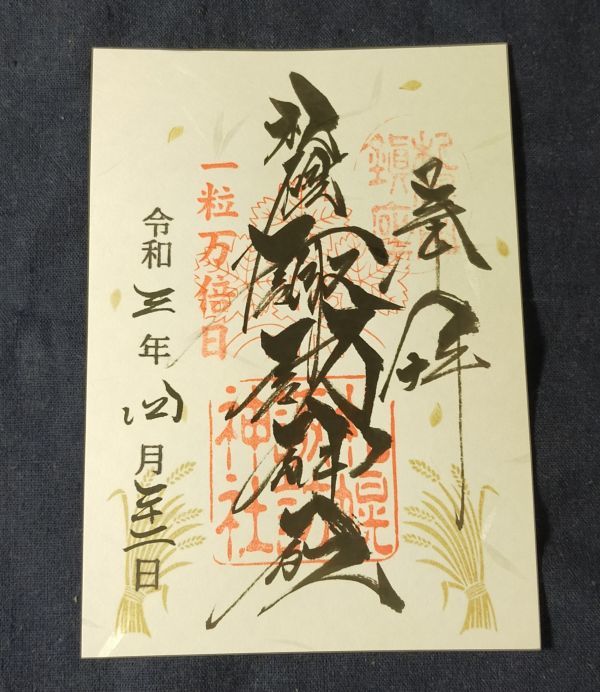 札幌鎮座
奉拝
札幌諏訪神社
一粒万倍日
令和三年四月十二日